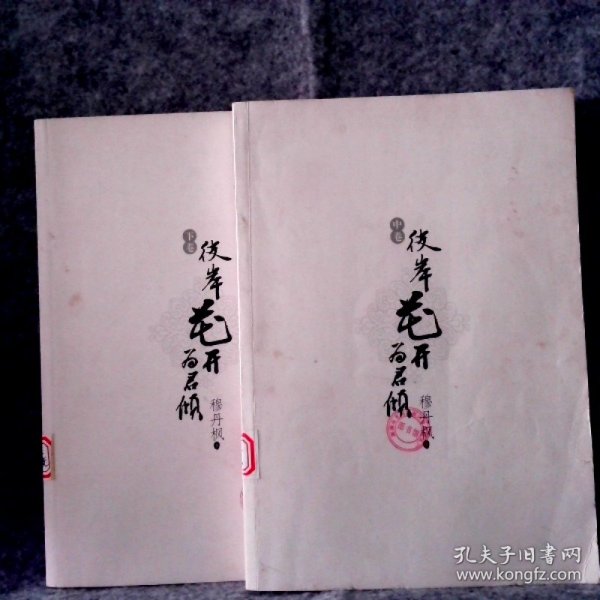 下卷
彼岸
花开
为君倾
穆丹枫
中卷
彼岸
花开
为君倾
穆丹枫
图书馆
孔夫子旧书网
www.kongfz.com